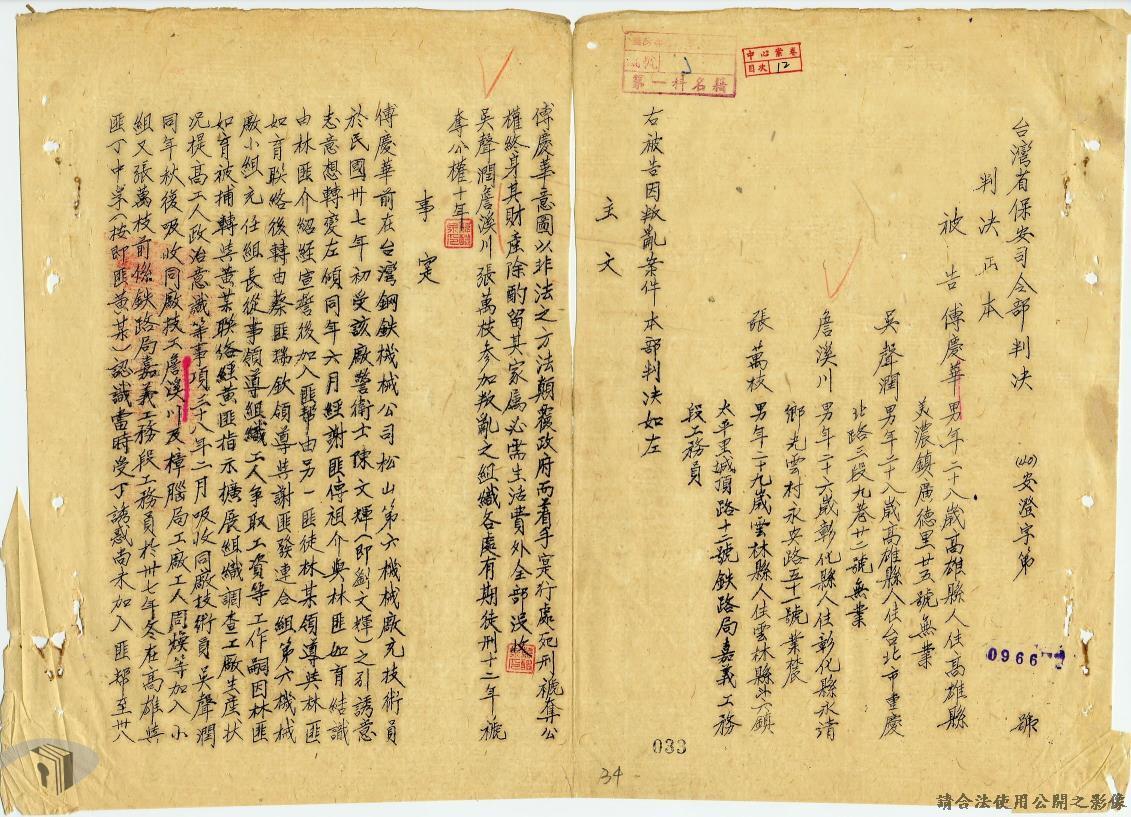 台灣省保安司令部判決　(40)安澄字第　0966　號
判決正本
被告　傅慶華　男年二十八歲高雄縣人住高雄縣
美濃鎮廣德里廿五號無業
吳聲潤　男年二十八歲高雄縣人住台北市重慶
北路三段九巷廿二號無業
詹溪川　男年二十六歲彰化縣人住彰化縣永清
鄉光雲村永安路五十一號業農
張萬枝　男年二十九歲雲林縣人住雲林縣斗六鎮
太平里城頂路十二號鉄路局嘉義工務
段工務員
右被告因叛亂案件本部判決如左
主文
傅慶華意圖以非法之方法顛覆政府而着手实行處死刑褫奪公
權終身其財產除酌留其家属必需生活費外全部没收
吳聲潤詹溪川張萬枝参加叛亂之組織各處有期徒刑十二年褫
奪公權十年
事实
傅慶華前在台灣鋼鉄機械公司松山第六機械廠充技術員
於民國卅七年初受該廠警衛士陳文輝（即劉文輝）之引誘意
志意想轉变左傾同年六月經謝匪傳祖介與林匪如育結識
由林匪介紹經宣誓後加入匪帮由另一匪徒林某領導與林匪
如育联絡後轉由蔡匪瑞欽領導與謝匪發連合組第六機械
廠小組充任組長從事領導組織工人争取工資等工作嗣因林匪
如育被捕轉與黄某联絡經黄匪指示擴展組織調查工廠生產状
况提高工人政治意識等事項三十八年二月吸收同廠技術員吳聲潤
同年秋後吸收同廠技工詹溪川及樟腦局工廠工人周煥等加入小
組又張萬枝前係鉄路局嘉義工務段工務員於卅七年冬在高雄與
匪丁中岸（按即匪黄某）認識當時受丁誘惑尚未加入匪帮至卅八
中心案卷
目次 12
第一科名籍
033
34
請合法使用公開之影像